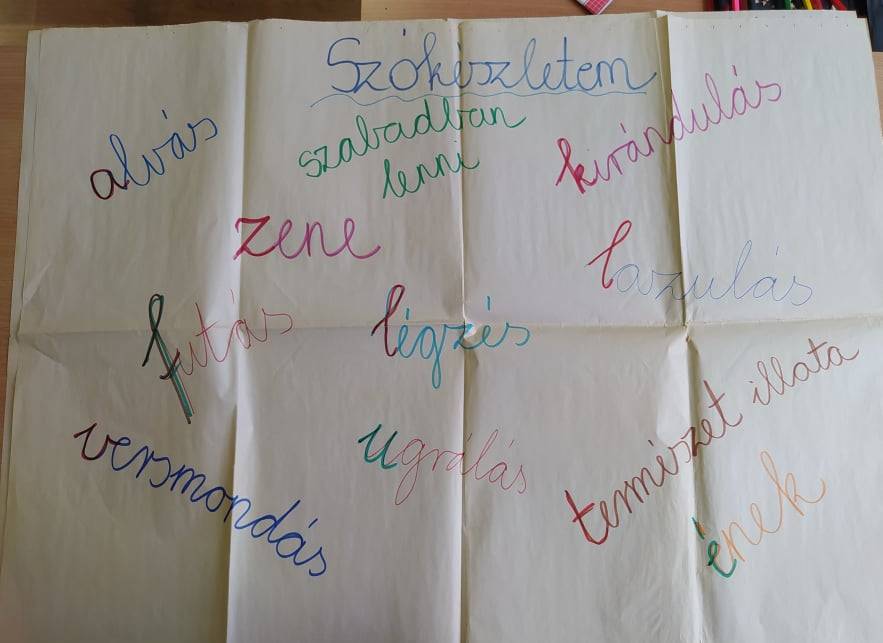 Szókészletem
alvás
szabadban
lenni
kirándulás
zene
lazulás
futás
légzés
természet illata
versmondás
ugrálás
ének